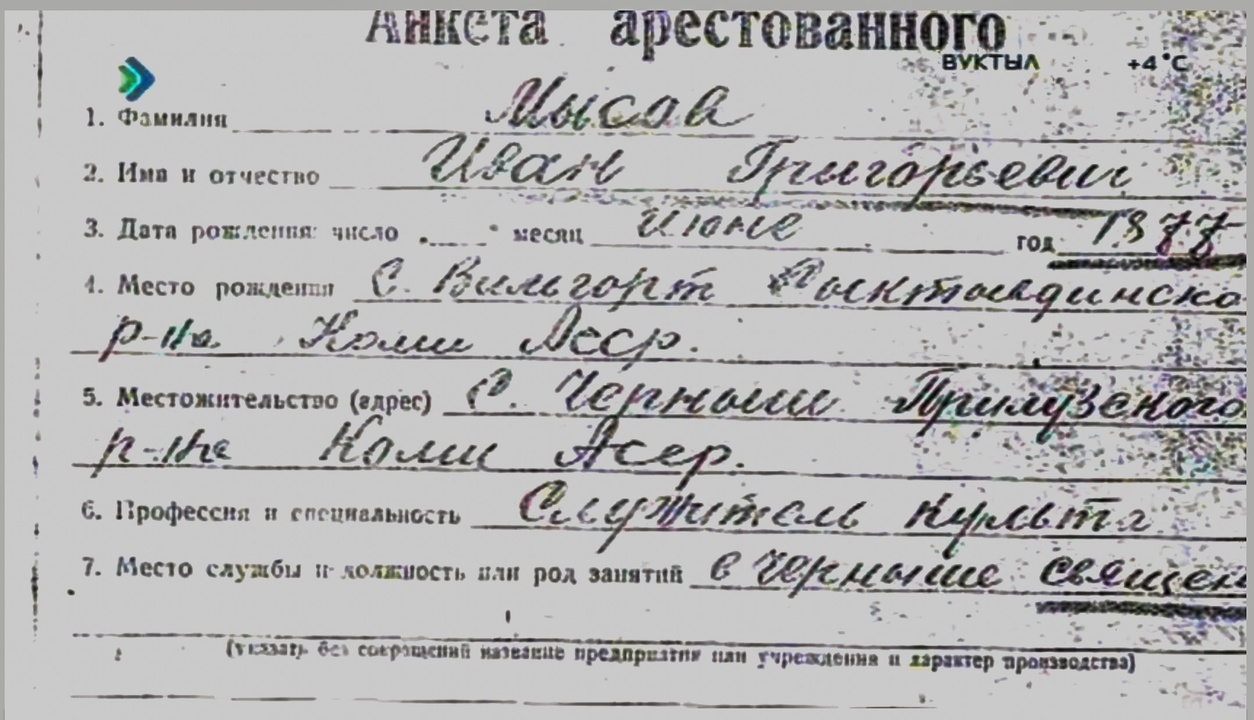 Анкета арестованного
ВУКТЫЛ +4°C
1. Фамилия Мысов
2. Имя и отчество Иван Григорьевич
3. Дата рождения: число " месяц июне год 1877
4. Место рождения С. Вильгорт Сыктывдинско
р-на Коми Асср.
5. Местожительство (адрес) С. Черныш Прилузского
р-на Коми Асср.
6. Профессия и специальность Служитель культа
7. Место службы и должность или род занятий в Черныше священ
(указать без сокращений название предприятия или учреждения и характер производства)